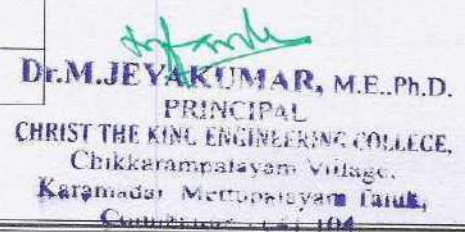 Dr.M.JEYAKUMAR, M.E.,Ph.D.
PRINCIPAL
CHRIST THE KING ENGINEERING COLLEGE,
Chikkarampalayam Village,
Karamadai Mettupalayam Taluk,
104